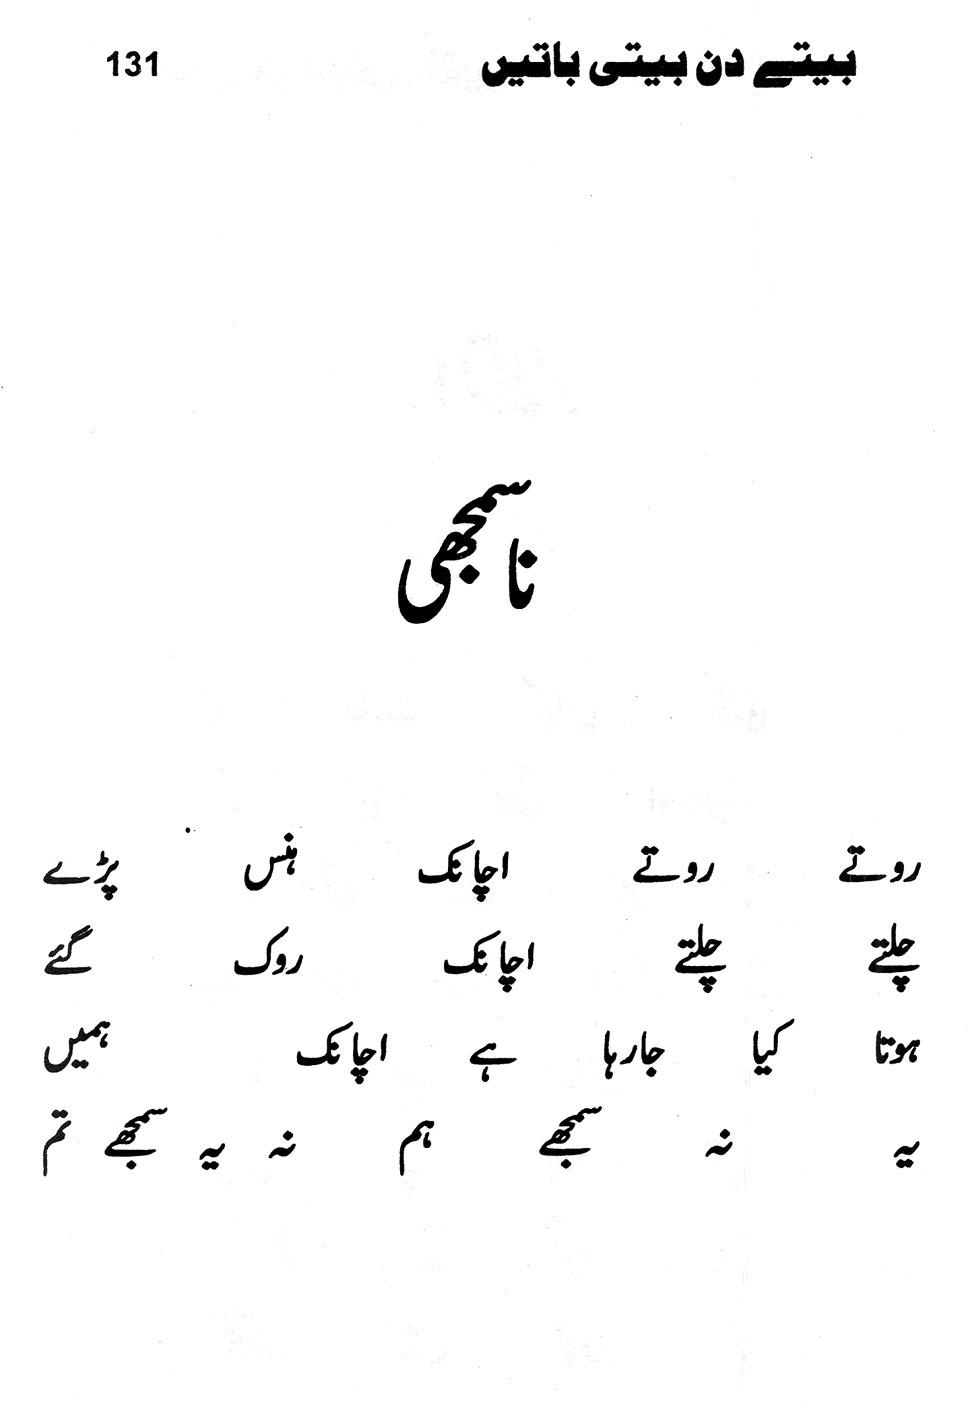 بیتے دن بیتی باتیں 131
ناسمجھی
روتے روتے اچانک ہنس پڑے
چلتے چلتے اچانک روک گئے
ہوتا کیا جارہا ہے اچانک ہمیں
یہ نہ سمجھے ہم نہ یہ سمجھے تم